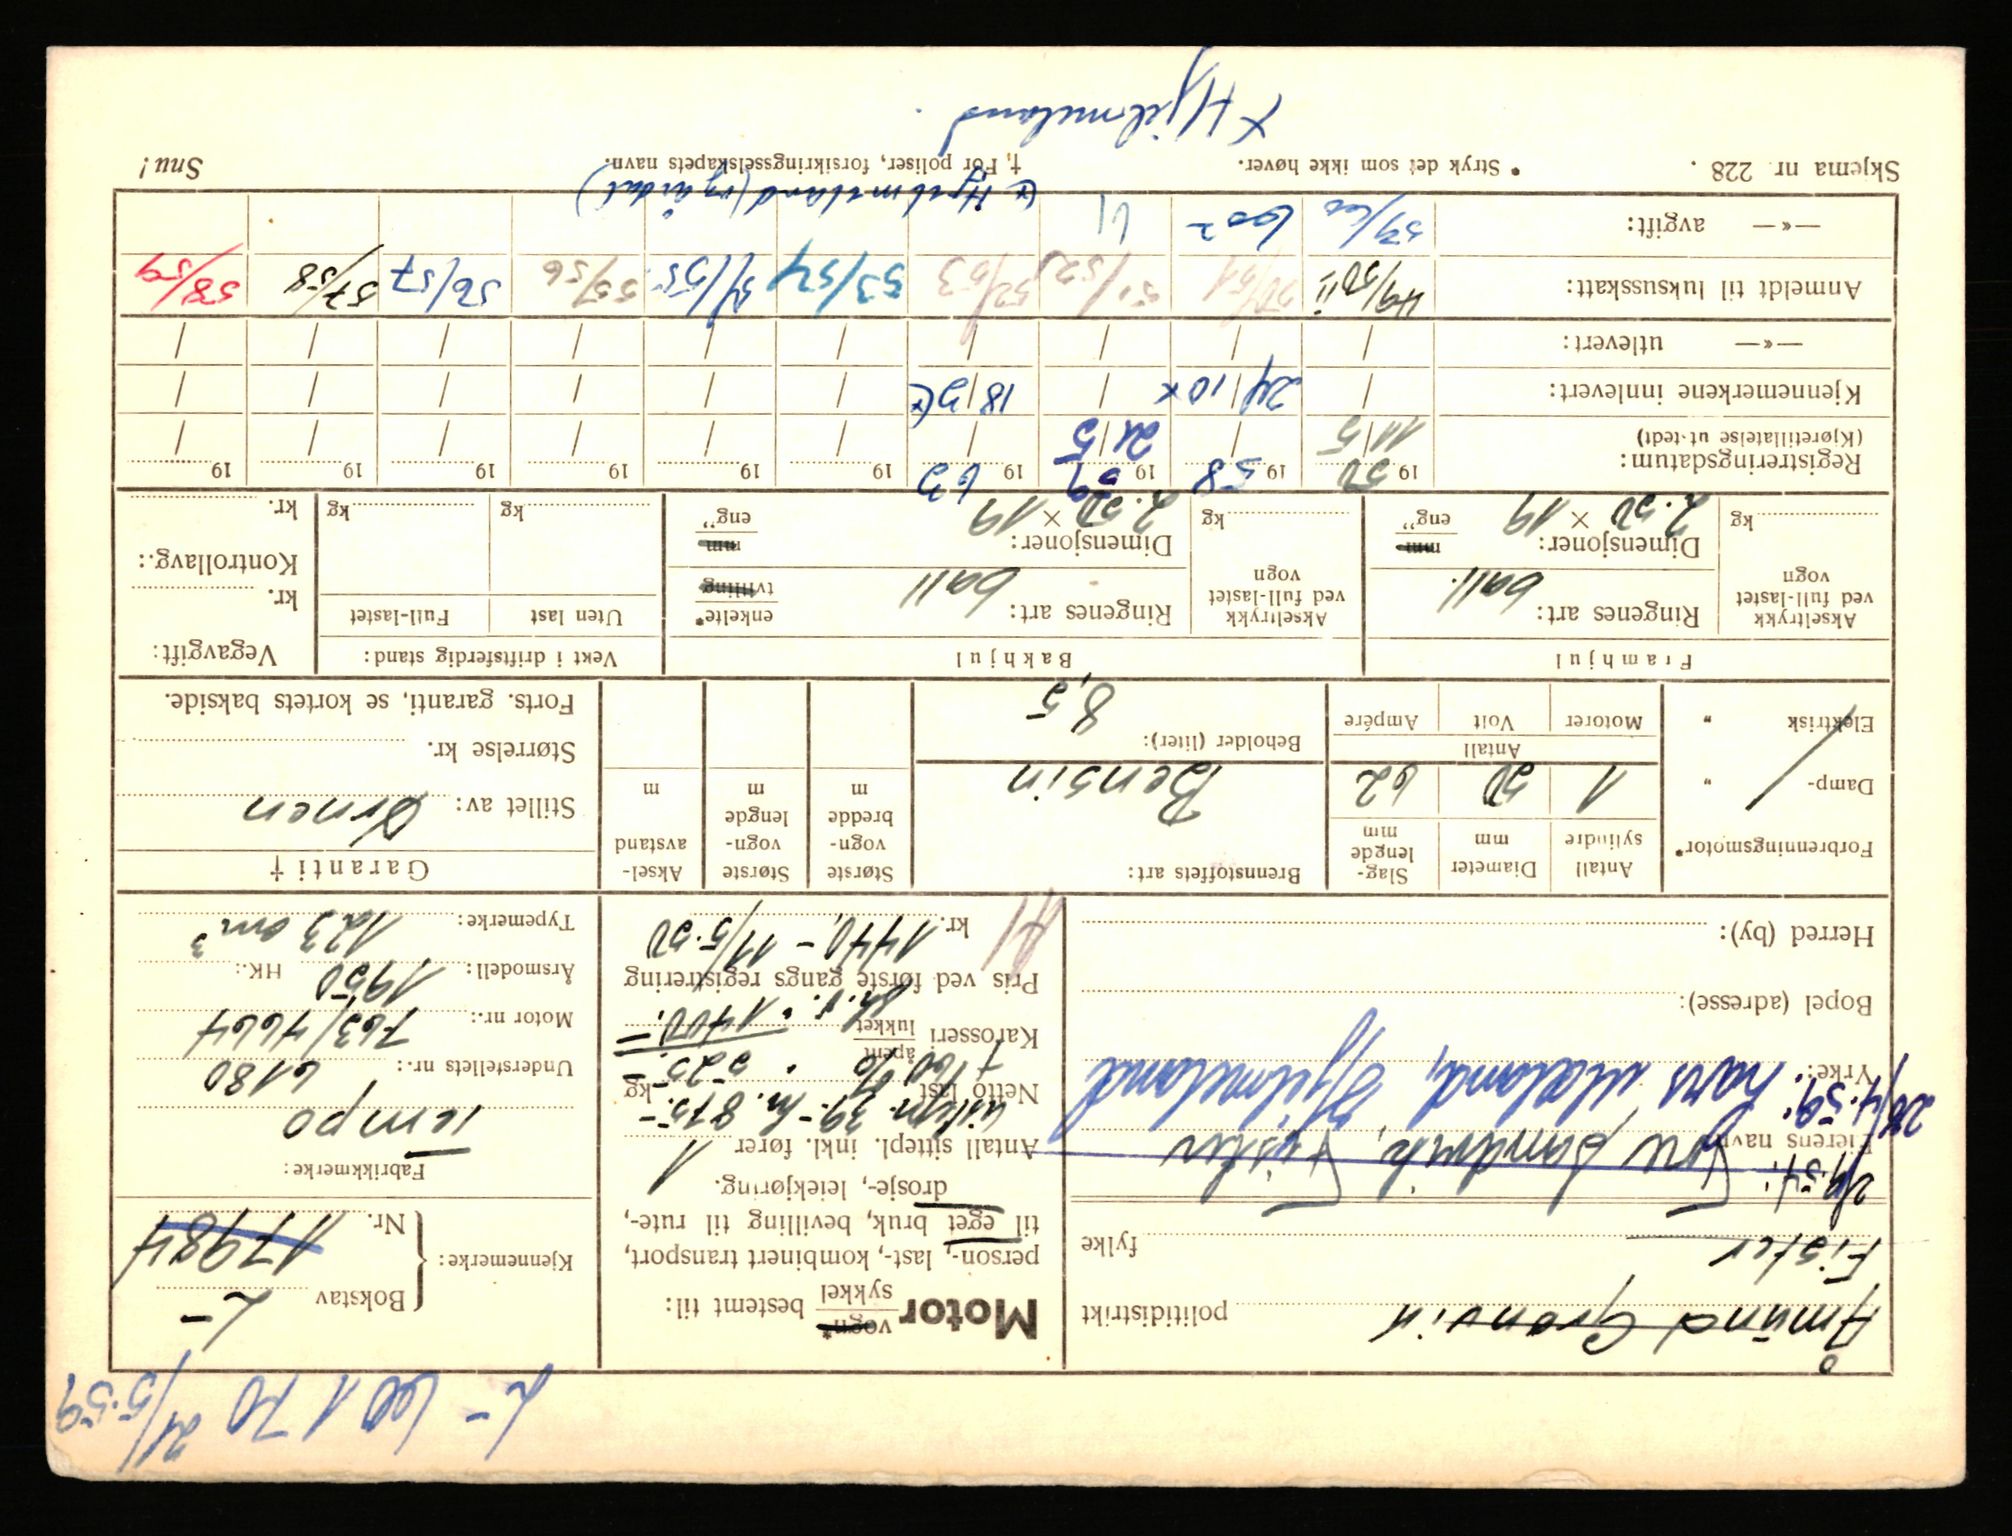 L- 60170 21/5-59
Åmund Grønvik politidistrikt
Fister fylke
Motor vogn* sykkel bestemt til:
person-, last-, kombinert transport,
til eget bruk, bevilling til rute-,
drosje-, leiekjøring.
Kjennemerke:
Bokstav L-
Nr. 17984
Eierens navn: Tore Sandvik, Fister
28/4.59. Lars Mæland, Hjelmeland
Yrke:
Bopel (adresse):
Herred (by):
Antall sittepl. inkl. fører 1
Netto last kg
Karosseri åpent lukket
Pris ved første gangs registrering
kr. 1440,- 11/5.50
Fabrikkmerke:
Tempo
Understellets nr.: 6180
Motor nr.: 763/4664
Årsmodell: 1950 HK.:
Typemerke: 123 cm³
Forbrenningsmotor*
Damp- "
Elektrisk "
Antall sylindre 1
Diameter mm 50
Slag-lengde mm 62
Antall
Motorer
Volt
Ampére
Brennstoffets art:
Bensin
Beholder (liter):
8,5
Største vogn-bredde m
Største vogn-lengde m
Aksel-avstand m
Garanti †
Stillet av: Ørnen
Størrelse kr.
Forts. garanti, se kortets bakside.
Framhjul
Akseltrykk ved full-lastet vogn kg
Ringenes art: ball.
Dimensjoner: mm eng"
2.50 × 19
Bakhjul
Akseltrykk ved full-lastet vogn kg
Ringenes art: ball enkelte* tvilling
Dimensjoner: mm eng"
2.50 × 19
Vekt i driftsferdig stand:
Uten last kg
Full-lastet kg
Vegavgift:
kr.
Kontrollavg.:
kr.
Registreringsdatum: (Kjøretillatelse ut-tedt)
1950 1958 1959 1963 19 19 19 19 19 19
11/5 / 21/5 / / / / / / /
Kjennemerkene innlevert: / 24/10 x / 18/5 (x / / / / / /
—«— utlevert: / / / / / / / / / /
Anmeldt til luksusskatt: 49/50 50/51 51/52 52/53 53/54 54/55 55/56 56/57 57/58 58/59
—«— avgift: 59/60
(x Hjelmeland (og årdal)
Skjema nr. 228.
* Stryk det som ikke høver.
†, For poliser, forsikringsselskapets navn.
Snu!
x Hjelmeland.